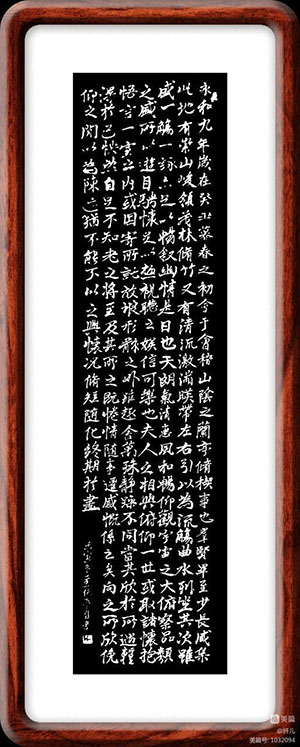 永和九年歲在癸丑暮春之初會于會稽山陰之蘭亭脩禊事也羣賢畢至少長咸集
此地有崇山峻領茂林脩竹又有清流激湍暎帶左右引以為流觴曲水列坐其次雖
盛一觴一詠亦足以暢叙幽情是日也天朗氣清惠風和暢仰觀宇宙之大俯察品類
之盛所以遊目騁懷足以極視聽之娛信可樂也夫人之相與俯仰一世或取諸懷抱
悟言一室之內或因寄所託放浪形骸之外雖趣舍萬殊靜躁不同當其欣於所遇輒
得於己快然自足不知老之將至及其所之既惓情隨事遷感慨係之矣向之所欣俛
仰之閒以為陳迹猶不能不以之興懷況脩短隨化終期於盡
美篇
美篇号: 1032094